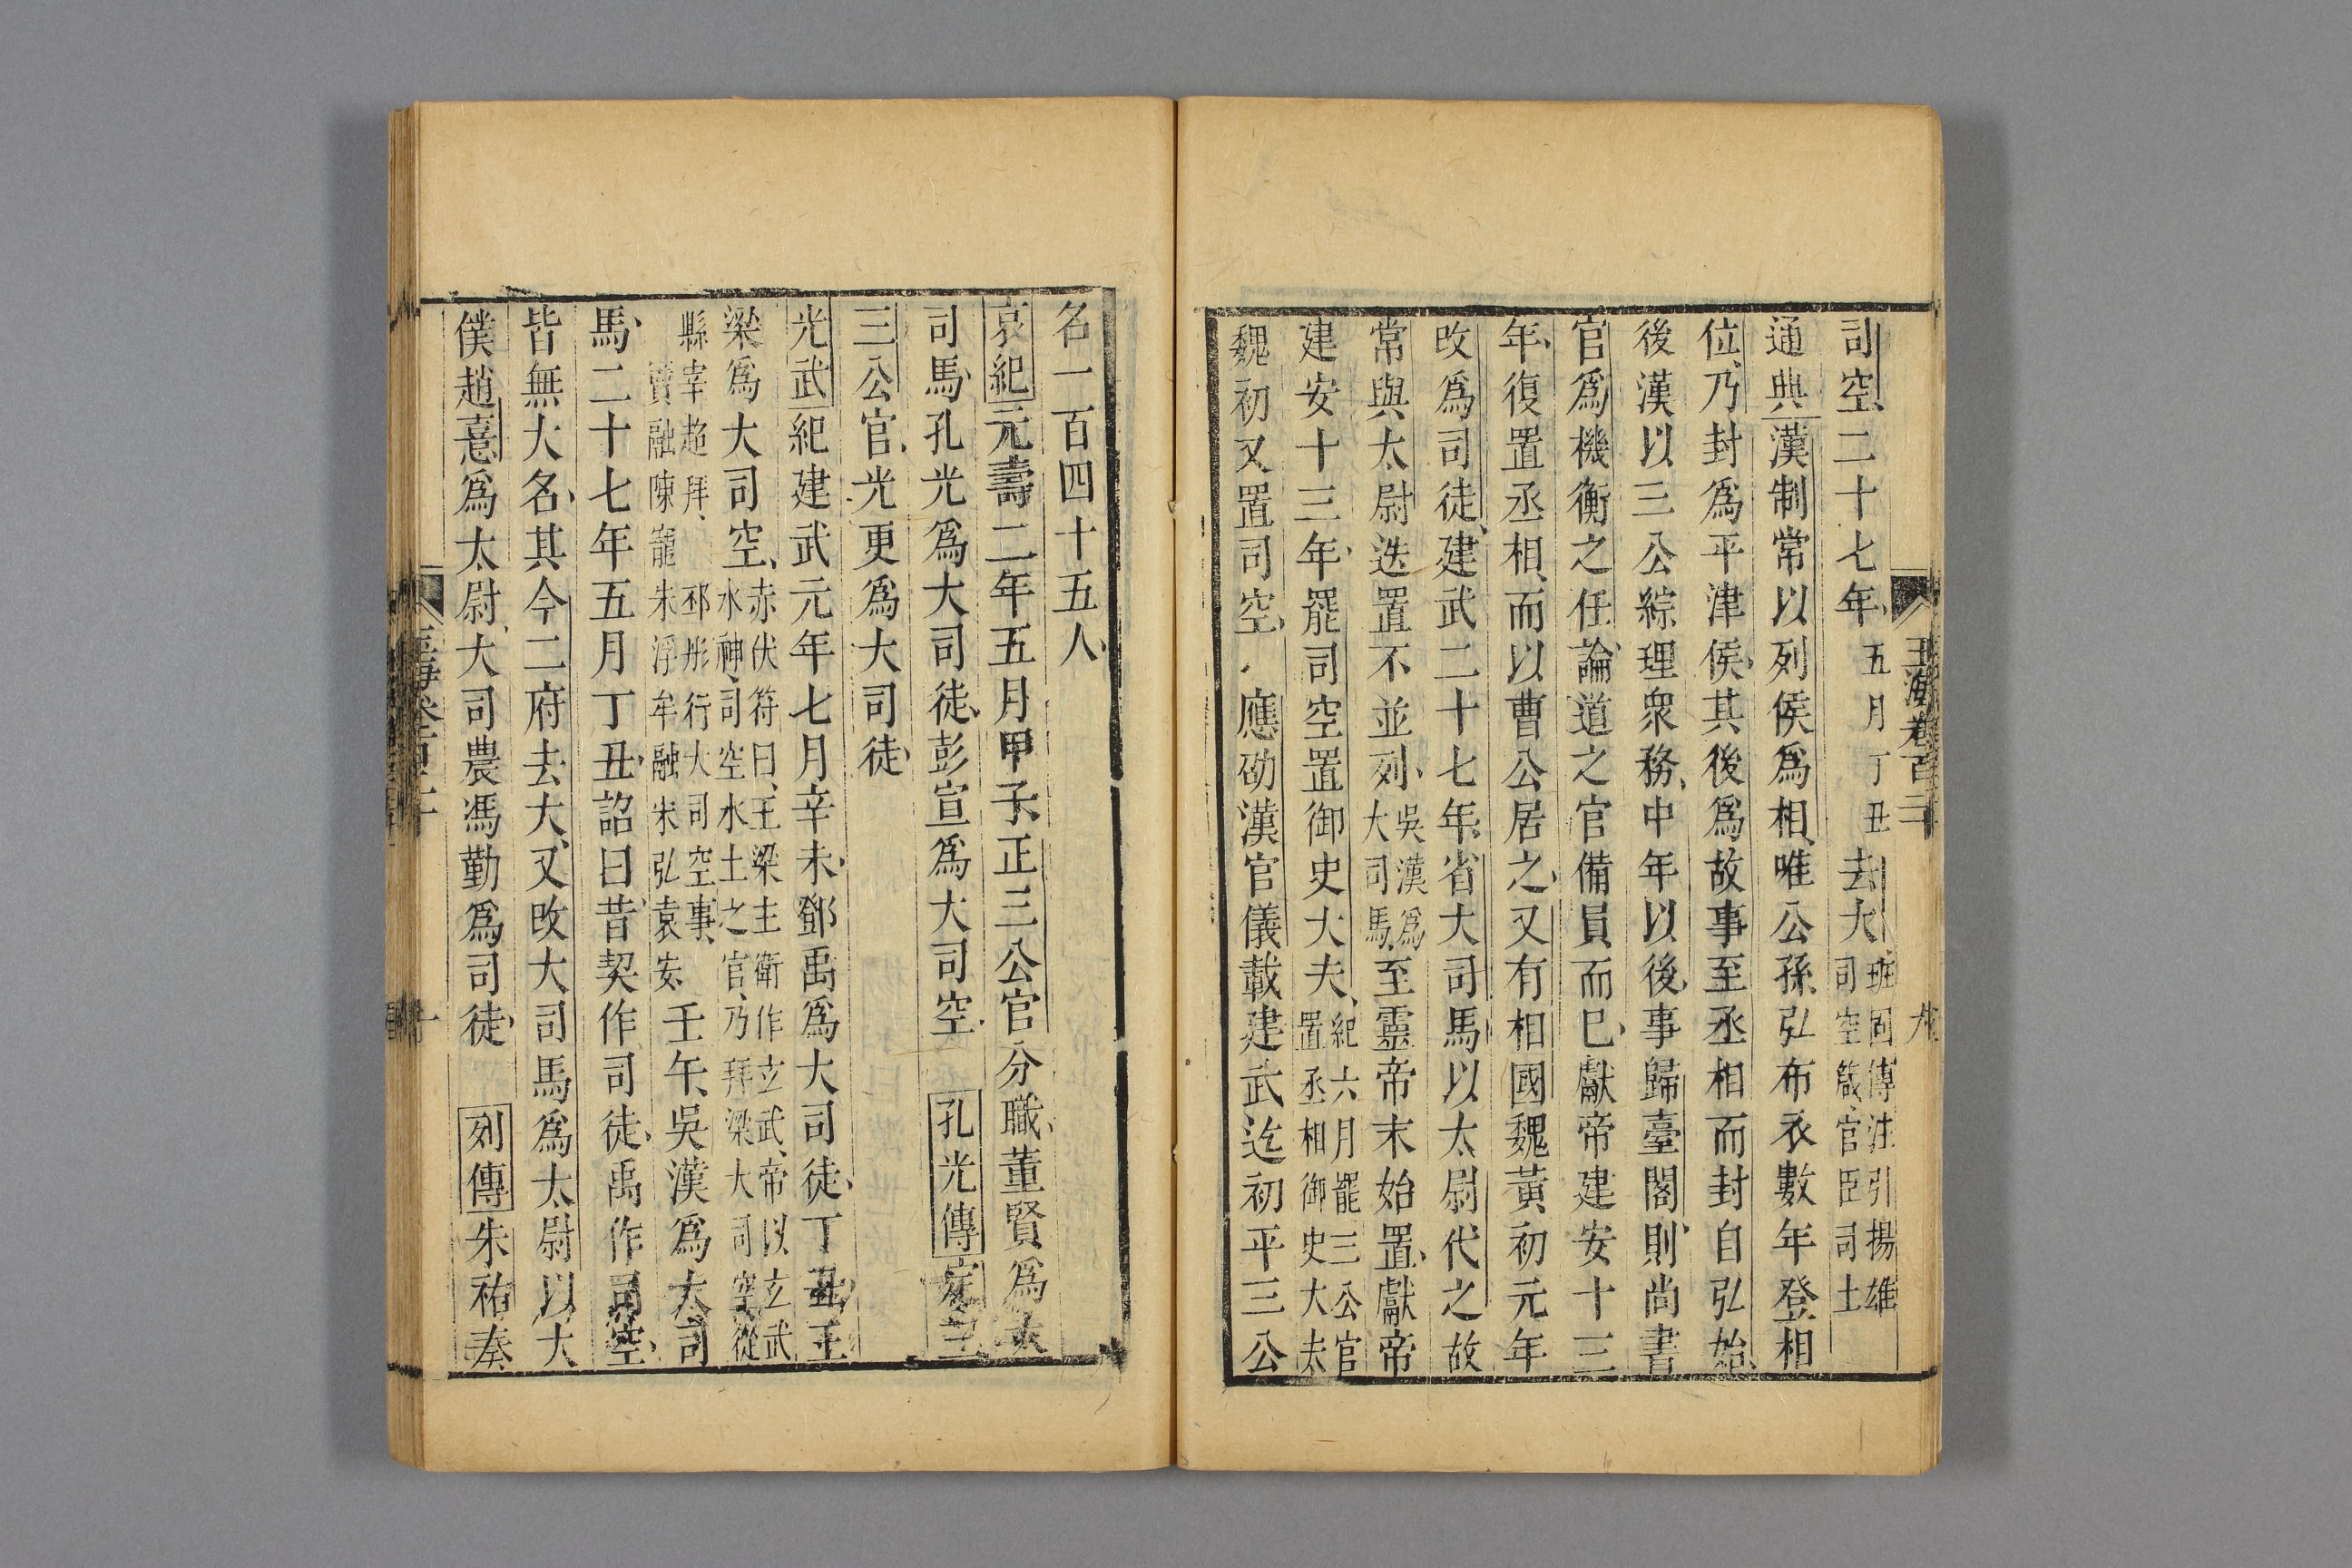 玉海卷百二十 九
司空二十七年五月丁丑去大班固傳注引揚雄司空箴官臣司土
通典漢制常以列侯爲相唯公孫弘布衣數年登相
位乃封爲平津侯其後爲故事至丞相而封自弘始
後漢以三公綜理衆務中年以後事歸臺閣則尚書
官爲機衡之任論道之官備員而巳獻帝建安十三
年復置丞相而以曹公居之又有相國魏黃初元年
改爲司徒建武二十七年省大司馬以太尉代之故
常與太尉迭置不並列吳漢爲大司馬至靈帝末始置獻帝
建安十三年罷司空置御史大夫紀六月罷三公官置丞相御史大夫
魏初又置司空應劭漢官儀載建武迄初平三公
名一百四十五人
哀紀元壽二年五月甲子正三公官分職董賢爲大
司馬孔光爲大司徒彭宣爲大司空 孔光傳定三
三公官光更爲大司徒
光武紀建武元年七月辛未鄧禹爲大司徒丁丑王
梁爲大司空赤伏符曰王梁主衛作玄武帝以玄武水神司空水土之官乃拜梁大司空從
縣宰超拜 邳彤行大司空事竇融陳寵朱浮牟融宋弘袁安壬午吳漢爲大司
馬二十七年五月丁丑詔曰昔契作司徒禹作司空
皆無大名其令二府去大又改大司馬爲太尉以大
僕趙憙爲太尉大司農馮勤爲司徒 列傳朱祐奏